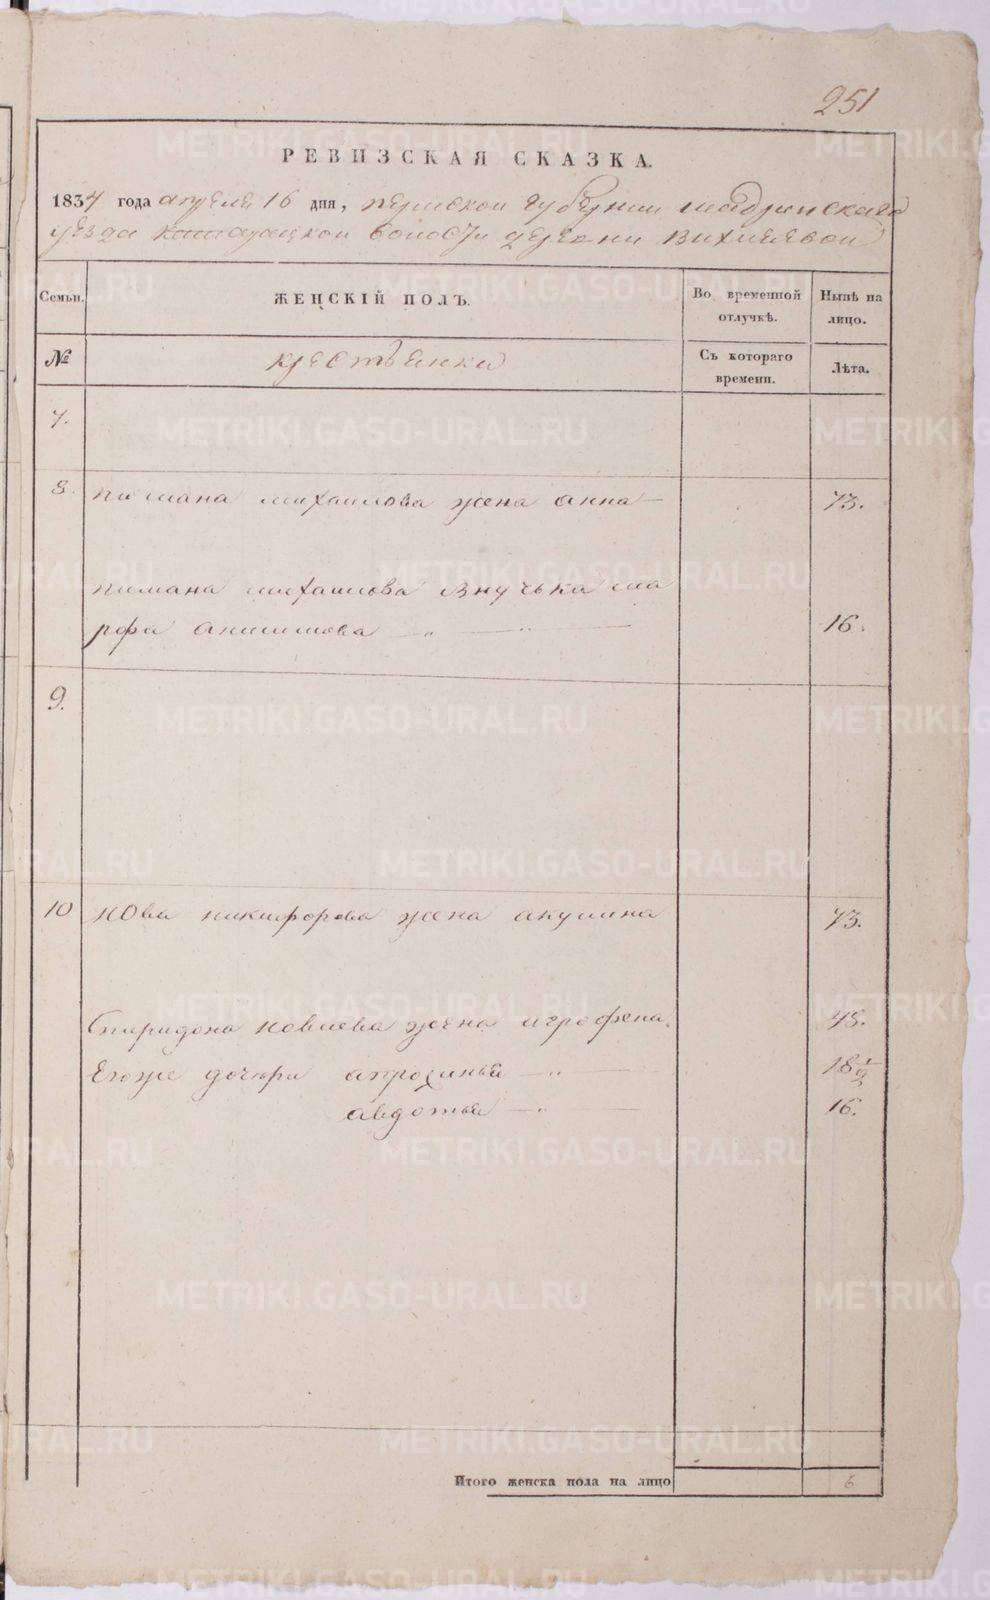 251
РЕВИЗСКАЯ СКАЗКА.
1834 года апреля 16 дня, пермской губернии шадринскаго
уезда волости деревни вихилевой
Семьи. ЖЕНСКІЙ ПОЛЪ. Во временной отлучкѣ. Нынѣ на лицо.
№ крестьянки Съ котораго времени. Лѣта.
7.
8. пимана михаилова жена анна 73.
пимана михаилова внучька ма
рфа анисимова 16.
9.
10 иова никифорова жена акулина 73.
Спиридона иовлева жена агрофена 45.
Егоже дочери апросинья 18 1/2
авдотья 16.
Итого женска пола на лицо 6
METRIKI.GASO-URAL.RU